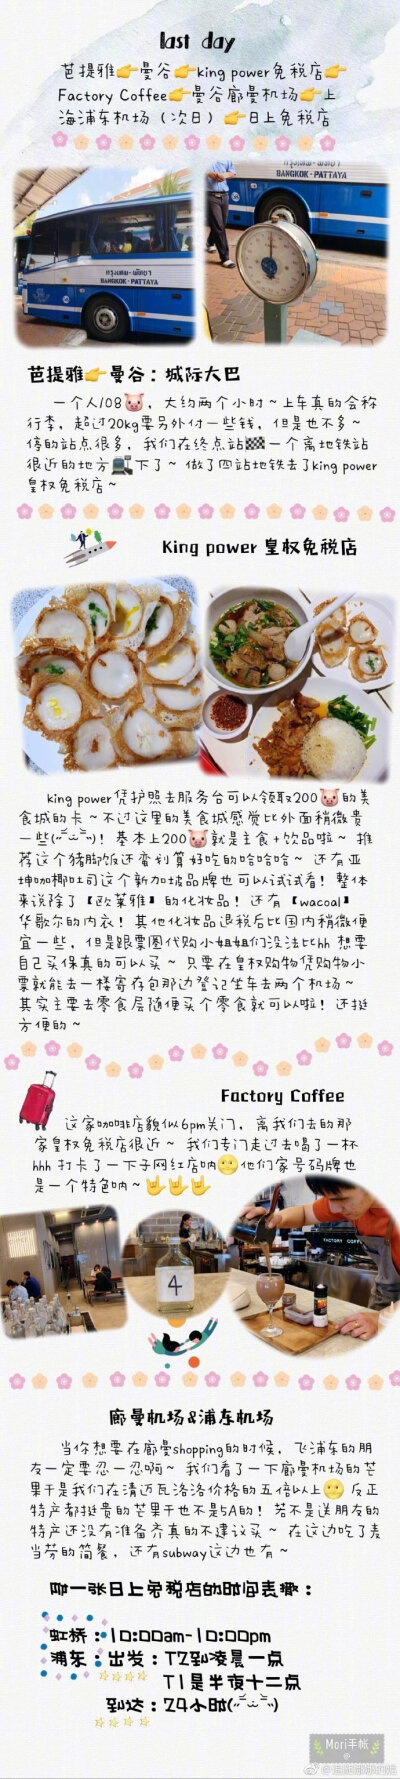 last day
芭提雅👉曼谷👉king power免税店👉
Factory Coffee👉曼谷廊曼机场👉上
海浦东机场（次日）👉日上免税店
กรุงเทพ-พัทยา
BANGKOK-PATTAYA
กรุงเทพ-พัทยา
BANGKOK-PATTAYA
芭提雅👉曼谷：城际大巴
一个人108🐷，大约两个小时~上车真的会称
行李，超过20kg要另外付一些钱，但是也不多~
停的站点很多，我们在终点站🏁一个离地铁站
很近的地方🚉下了~做了四站地铁去了king power
皇权免税店~
King power 皇权免税店
king power凭护照去服务台可以领取200🐷的美
食城的卡~不过这里的美食城感觉比外面稍微贵
一些(˶‾᷄ ⁻̫ ‾᷅˵)！基本上200🐷就是主食+饮品啦~推
荐这个猪脚饭还蛮划算好吃的哈哈哈~还有亚
坤咖椰吐司这个新加坡品牌也可以试试看！整体
来说除了【欧莱雅】的化妆品！还有【wacoal】
华歌尔的内衣！其他化妆品退税后比国内稍微便
宜一些，但是跟票圈代购小姐姐们没法比hh 想要
自己买保真的可以买~只要在皇权购物凭购物小
票就能去一楼寄存包那边登记坐车去两个机场~
其实主要去零食层随便买个零食就可以啦！还挺
方便的~
Factory Coffee
这家咖啡店貌似6pm关门，离我们去的那
家皇权免税店很近~我们专门走过去喝了一杯
hhh 打卡了一下子网红店呐🌝他们家号码牌也
是一个特色呐~🤟🤟🤟
4
FACTORY COFFEE
廊曼机场&浦东机场
当你想要在廊曼shopping的时候，飞浦东的朋
友一定要忍一忍啊~我们看了一下廊曼机场的芒
果干是我们在清迈瓦洛洛价格的五倍以上🌝反正
特产都挺贵的芒果干也不是5A的！若不是送朋友的
特产还没有准备齐真的不建议买~在这边吃了麦
当劳的简餐，还有subway这边也有~
附一张日上免税店的时间表撒：
虹桥：10:00am-10:00pm
浦东：出发：T2到凌晨一点
T1是半夜十二点
到达：24小时(˶‾᷄ ⁻̫ ‾᷅˵)
Mori手帐